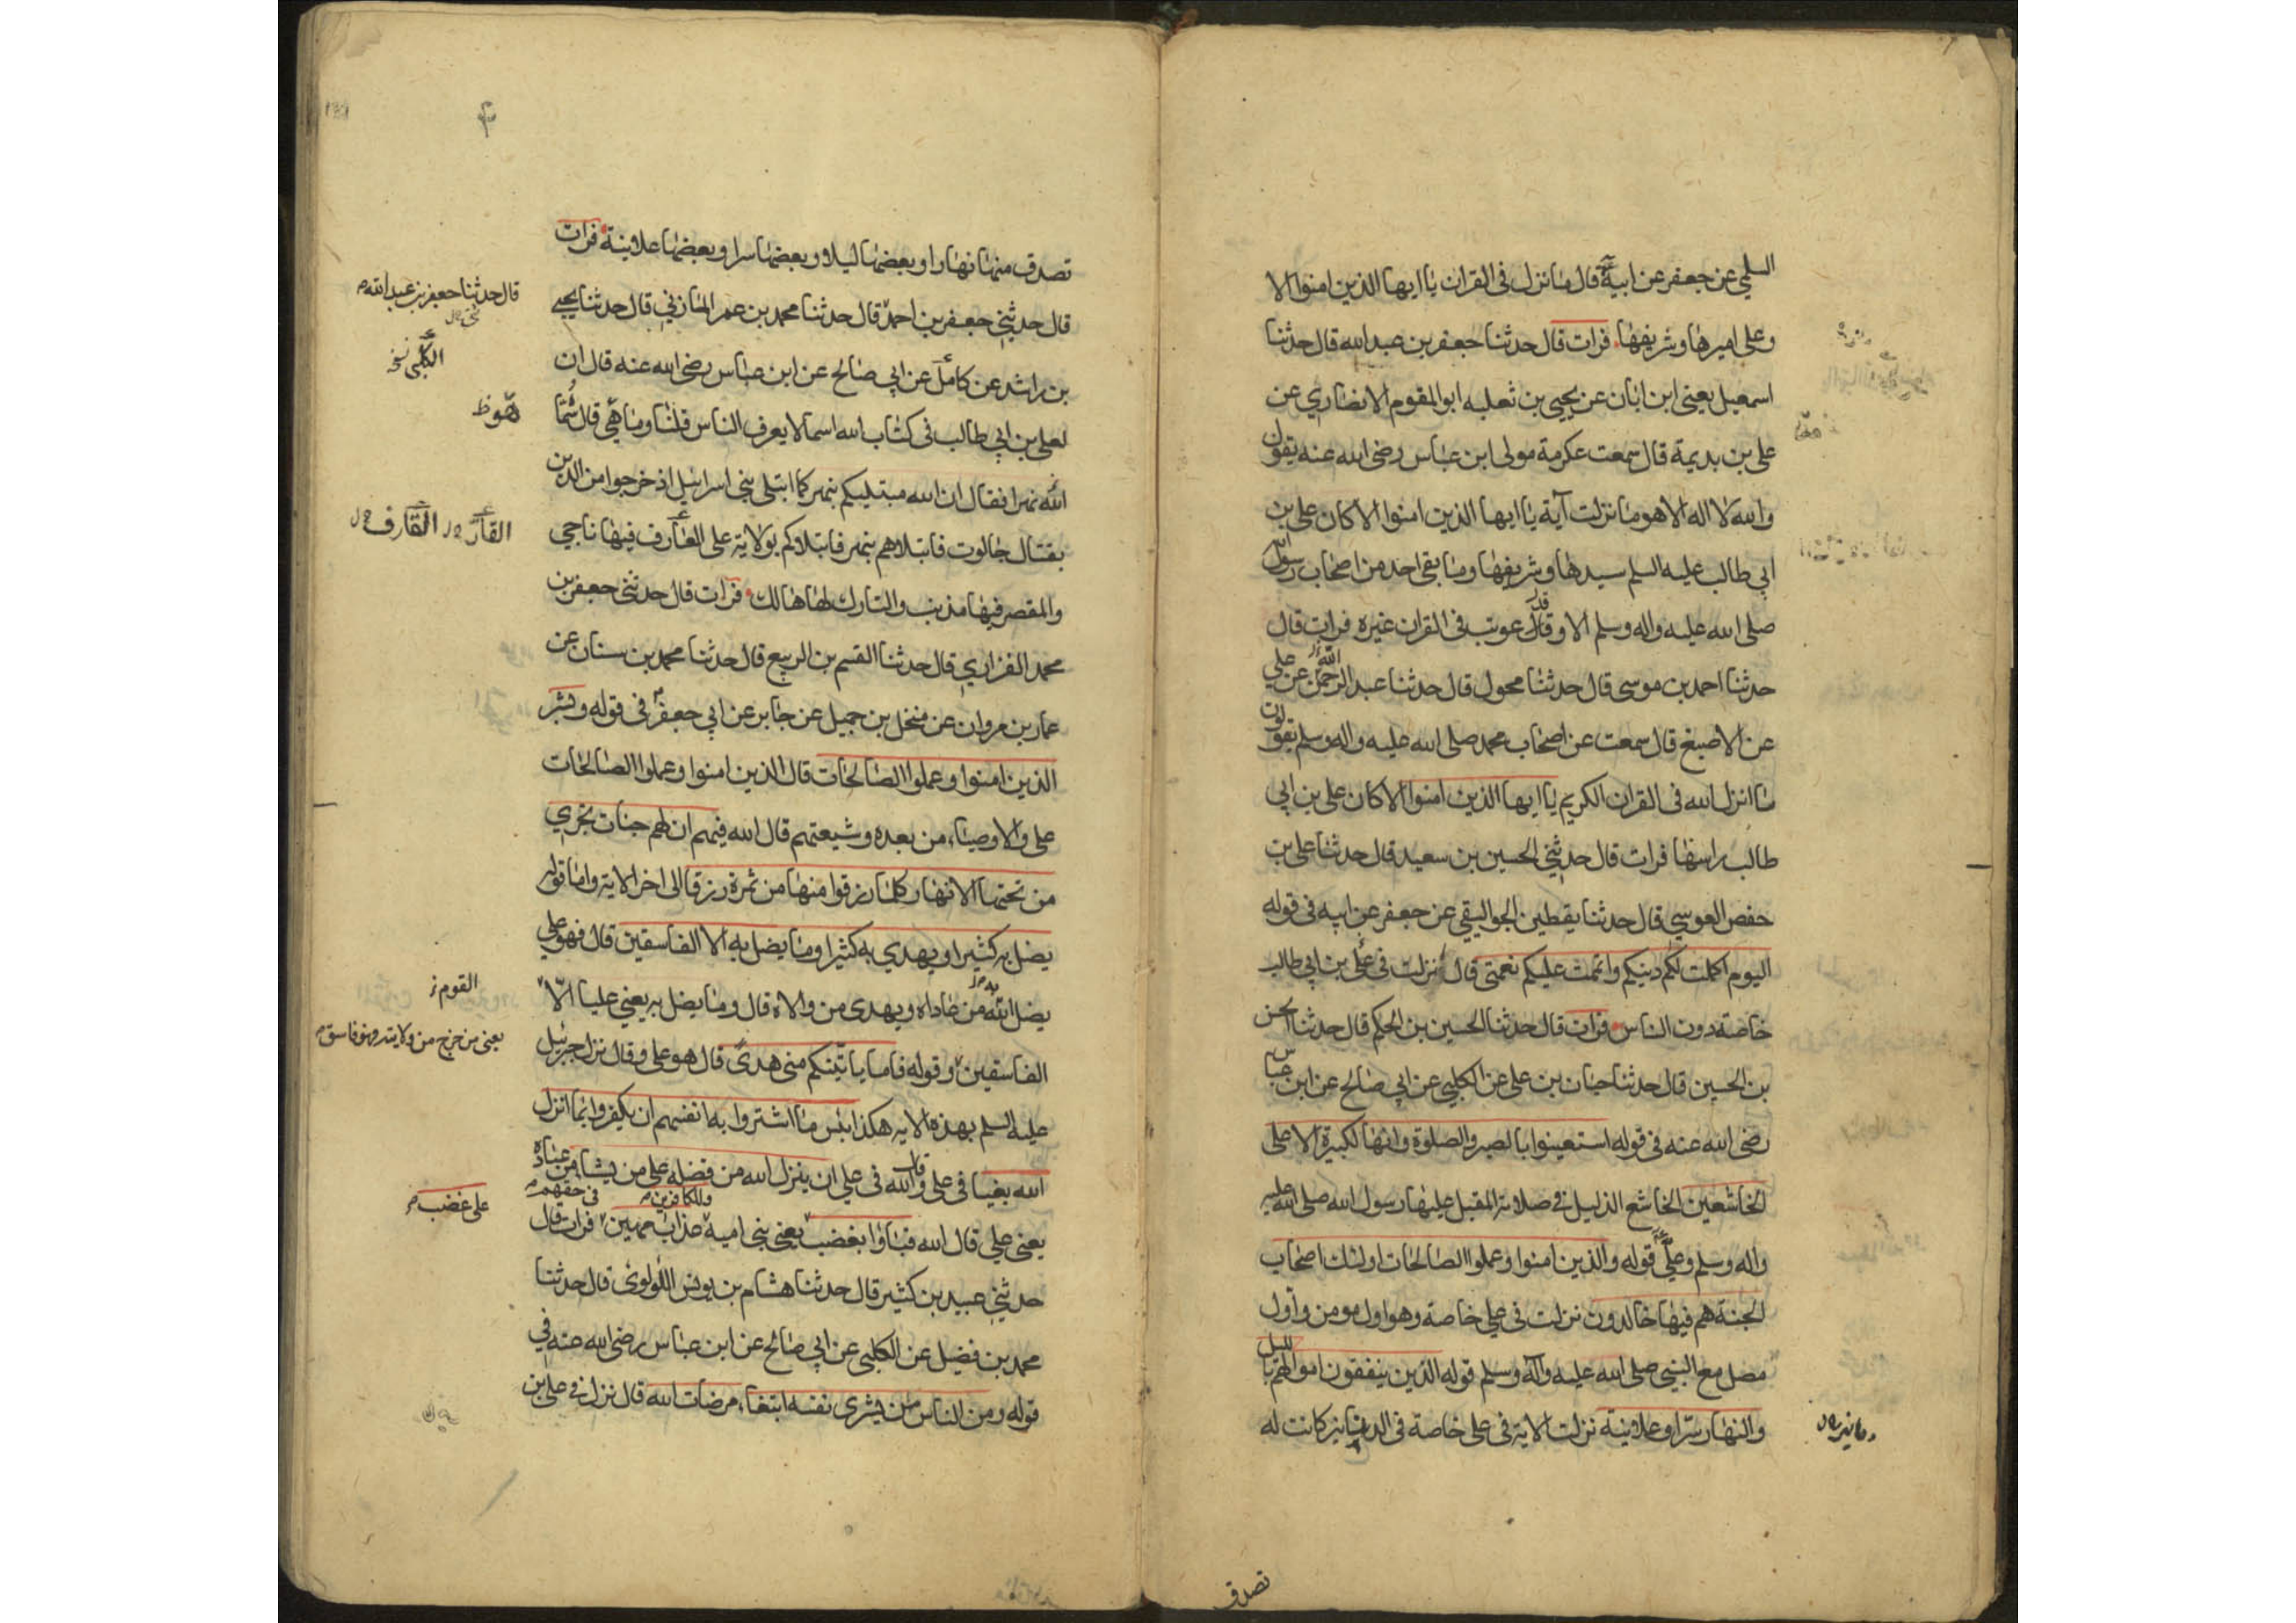 السلمي عن جعفر عن ابيه قال ما نزل في القران يا ايها الذين امنوا الا
وعلي اميرها وشريفها فرات قال حدثنا جعفر بن عبد الله قال حدثنا
اسمعيل يعني ابن ابان عن يحيى بن ثعلبه ابو المقوم الانصاري عن
علي بن بديمة قال سمعت عكرمة مولى ابن عباس رضي الله عنه يقول
والله لا اله الا هو ما نزلت آية يا ايها الذين امنوا الا كان علي بن
ابي طالب عليه السلم سيدها وشريفها وما بقي احد من اصحاب رسول الله
صلى الله عليه واله وسلم الا وقد عوتب في القران غيره فرات قال
حدثنا احمد بن موسى قال حدثنا محول قال حدثنا عبد الرحمن عن علي
عن الاصبغ قال سمعت عن اصحاب محمد صلى الله عليه واله وسلم يقولون
ما انزل الله في القران الكريم يا ايها الذين امنوا الا كان علي بن ابي
طالب راسها فرات قال حدثني الحسين بن سعيد قال حدثنا علي بن
حفص العوسي قال حدثنا يقطين الجواليقي عن جعفر عن ابيه في قوله
اليوم اكملت لكم دينكم واتممت عليكم نعمتي قال نزلت في علي بن ابي طالب
خاصة دون الناس فرات قال حدثنا الحسين بن الحكم قال حدثنا الحسن
بن الحسين قال حدثنا حبان بن علي عن الكلبي عن ابي صالح عن ابن عباس
رضي الله عنه في قوله استعينوا بالصبر والصلوة وانها لكبيرة الا على
الخاشعين الخاشع الذليل في صلاته المقبل عليها رسول الله صلى الله عليه
واله وسلم وعلي قوله والذين امنوا وعملوا الصالحات اولئك اصحاب
الجنة هم فيها خالدون نزلت في علي خاصة وهو اول مومن واول
مصل مع النبي صلى الله عليه وآله وسلم قوله الذين ينفقون اموالهم بالليل
والنهار سرا وعلانية نزلت الاية في علي خاصة في الدنانير كانت له
دنانير ن ل
تصدق
تصدق منها نهارا وبعضها ليلا وبعضها سرا وبعضها علانية فرات
قال حدثني جعفر بن احمد قال حدثنا محمد بن عمر المازني قال حدثنا يحيى
قال حدثنا جعفر بن عبد الله
بن راشد عن كامل عن ابي صالح عن ابن عباس رضي الله عنه قال ان
الكلبي نخ
لعلي بن ابي طالب في كتاب الله اسما لا يعرف الناس قلنا وما هي قال سما
هو ظ
الله نهرا فقال ان الله مبتليكم بنهر كما ابتلى بني اسرائيل اذ خرجوا من الدين
بقتال جالوت فابتلاهم بنهر فابتلاكم بولاية علي العارف فيها ناجي
القار ن ل القارف ن ل
والمقصر فيها مذنب والتارك لها هالك فرات قال حدثني جعفر بن
محمد الفزاري قال حدثنا القسم بن الربيع قال حدثنا محمد بن سنان عن
عمار بن مروان عن منخل بن جميل عن جابر عن ابي جعفر في قوله وبشر
الذين امنوا وعملوا الصالحات قال الذين امنوا وعملوا الصالحات
علي والاوصياء من بعده وشيعتهم قال الله فيهم ان لهم جنات تجري
من تحتها الانهار كلما رزقوا منها من ثمرة رزقا الى اخر الاية واما قوله
يضل به كثيرا ويهدي به كثيرا وما يضل به الا الفاسقين قال فهو علي
يضل الله به من عاداه ويهدى من والاه قال وما يضل به يعني عليا الا
القوم ز
الفاسقين وقوله فاما ياتينكم مني هدى قال هو علي وقال نزل جبرئيل
يعني من خرج من ولايته وهو فاسق
عليه السلم بهذه الايه هكذا بئس ما اشتروا به انفسهم ان يكفروا بما انزل
الله بغيا في علي وقال الله في علي ان ينزل الله من فضله على من يشاء من عباده
على غضب
وللكافرين
في حقهم
يعني علي قال الله فباؤا بغضب يعني بني امية عذاب مهين فرات قال
حدثني عبيد بن كثير قال حدثنا هشام بن يونس اللولوى قال حدثنا
محمد بن فضيل عن الكلبي عن ابي صالح عن ابن عباس رضي الله عنه في
قوله ومن الناس من يشرى نفسه ابتغاء مرضات الله قال نزل في علي بن